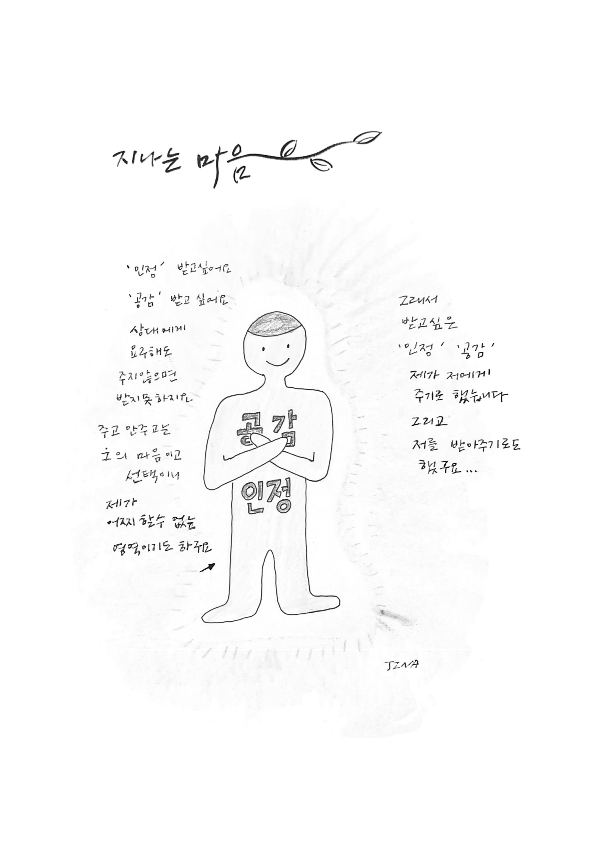 지나는 마음
'인정' 받고싶어요
'공감' 받고 싶어요
상대에게
요구해도
주지않으면
받지못하지요
주고 안주고는
그의 마음이고
선택이니
제가
어찌 할수 없는
영역이기도 하구요
공감
인정
그래서
받고싶은
'인정' '공감'
제가 저에게
주기로 했습니다
그리고
저를 받아주기로도
했구요...
TINA